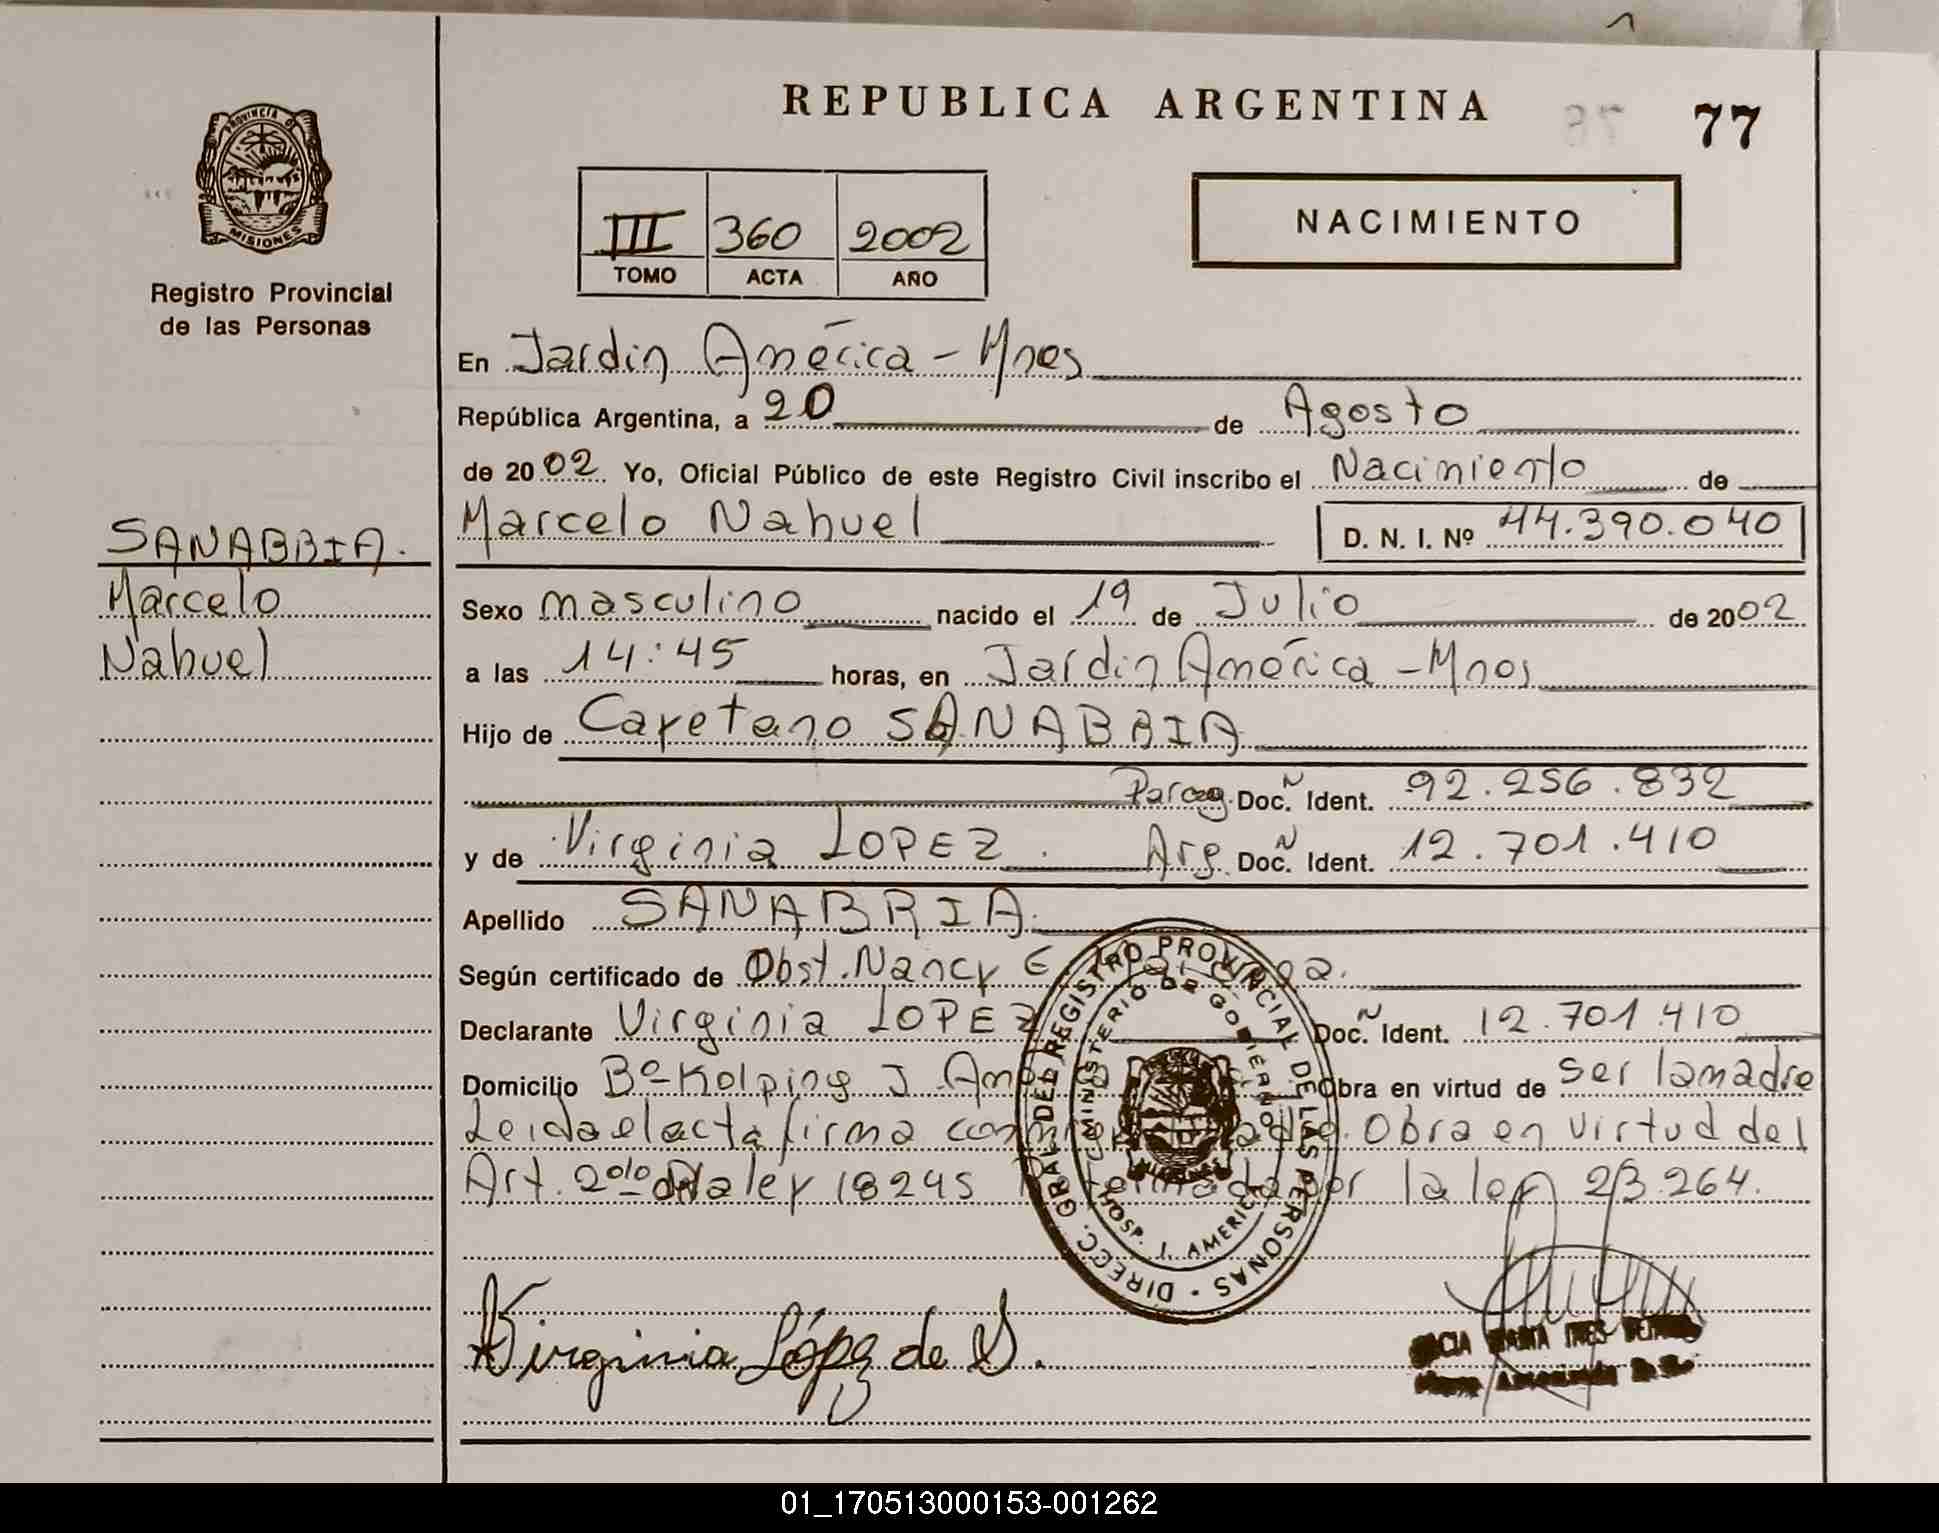 REPUBLICA ARGENTINA
77
PROVINCIA DE
MISIONES
Registro Provincial
de las Personas
III 360 2002
TOMO ACTA AÑO
NACIMIENTO
En Jardin América - Mnes
República Argentina, a 20 de Agosto
de 2002 Yo, Oficial Público de este Registro Civil inscribo el Nacimiento de
Marcelo Nahuel D. N. I. Nº 44.390.040
SANABRIA.
Marcelo
Nahuel
Sexo masculino nacido el 19 de Julio de 2002
a las 14:45 horas, en Jardin América - Mnes
Hijo de Cayetano SANABRIA
Parag. Doc. Ñ Ident. 92.256.832
y de Virginia LOPEZ. Arg. Doc. Ñ Ident. 12.701.410
Apellido SANABRIA.
Según certificado de Obst. Nancy E.
Declarante Virginia LOPEZ Doc. Ñ Ident. 12.701.410
Domicilio Bº Kolping J. Obra en virtud de ser la madre
Leida el acta firma la madre. Obra en virtud del
Art. 2º de la ley 18245 por la ley 23.264.
DIRECC. GRAL. DEL REGISTRO PROVINCIAL DE LAS PERSONAS
MINISTERIO DE GOBIERNO
HOSP. J. AMERICA
MISIONES
Virginia López de S.
MARIA INES
01_170513000153-001262